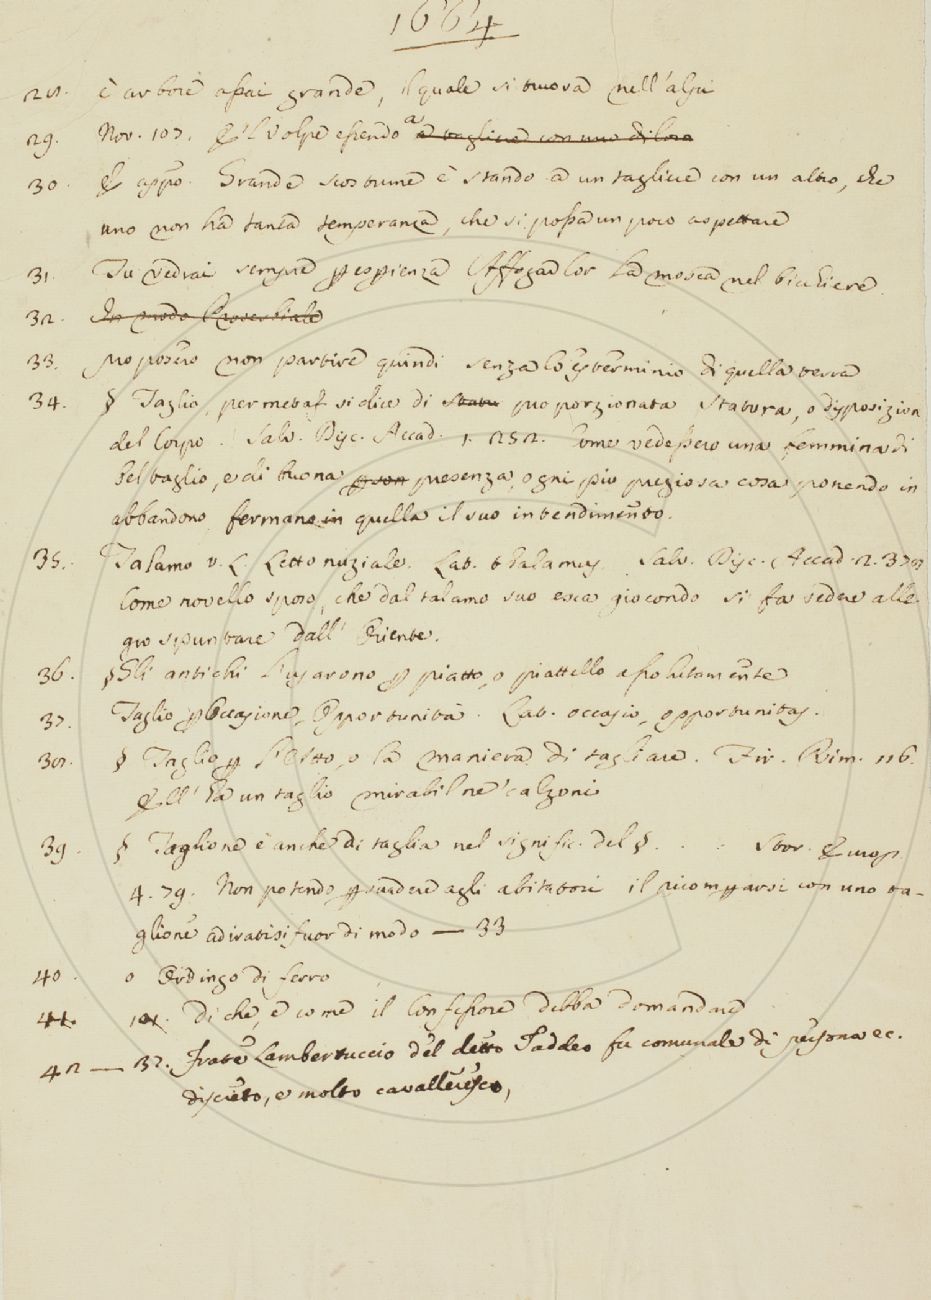 1664
28. è arbore assai grande, il quale si truova nell'alpi
29. Nov. 107. E'l Volpe essendo a a tagliere con uno di loro
30. E appo. Grande scostume è stando a un tagliere con un altro, che
uno non ha tanta temperanza, che si possa un poco aspettare
31. Tu vedrai sempre p Affogar lor la mosca nel bicchiere
32. In modo Proverbiale
33. proposero non partire quindi senza lo esterminio di quella terra
34. § Taglio, per metaf. si dice di statu proporzionata Statura, o disposizion
del Corpo. Salv. Disc. Accad. 1. 252. Come vedessero una femmina di
bel taglio, e di buona presenza, ogni più preziosa cosa ponendo in
abbandono, fermano in quella il suo intendimento.
35. Talamo v. L. Letto nuziale. Lat. thalamus. Salv. Disc. Accad. 2. 378
Come novello sposo, che dal talamo suo esca giocondo si fa vedere alle-
gro spuntare dall' Oriente.
36. § Gli antichi l'usarono p piatto, o piattello assolutamente
37. Taglio p Occasione, Opportunità. Lat. occasio, opportunitas.
38. § Taglio p l'Atto, o la maniera di tagliare. Fir. Rim. 116.
Ell' ha un taglio mirabil ne' calzoni
39. § Taglione è anche di taglia nel signific. del §. . : Stor. Europ.
4. 79. Non potendo psuadere agli abitatori il ricompparsi con uno ta-
glione adiratisi fuor di modo — 33
40. o Ordingo di ferro
41. Di che, e come il Confessore debba domandare
42 — 37. Frate Lambertuccio del detto Taddeo fu comunale di persona ec.
discreto, e molto cavalleresco,